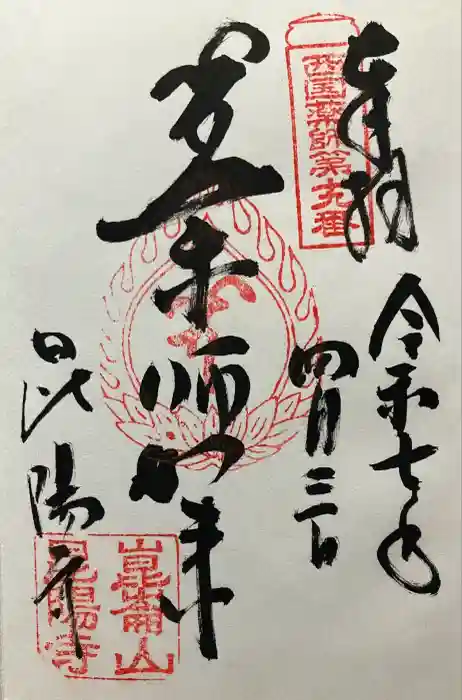 奉拝
西国薬師第九番
令和七年
四月三日
薬師如来
昆陽寺
崑崙山
昆陽寺